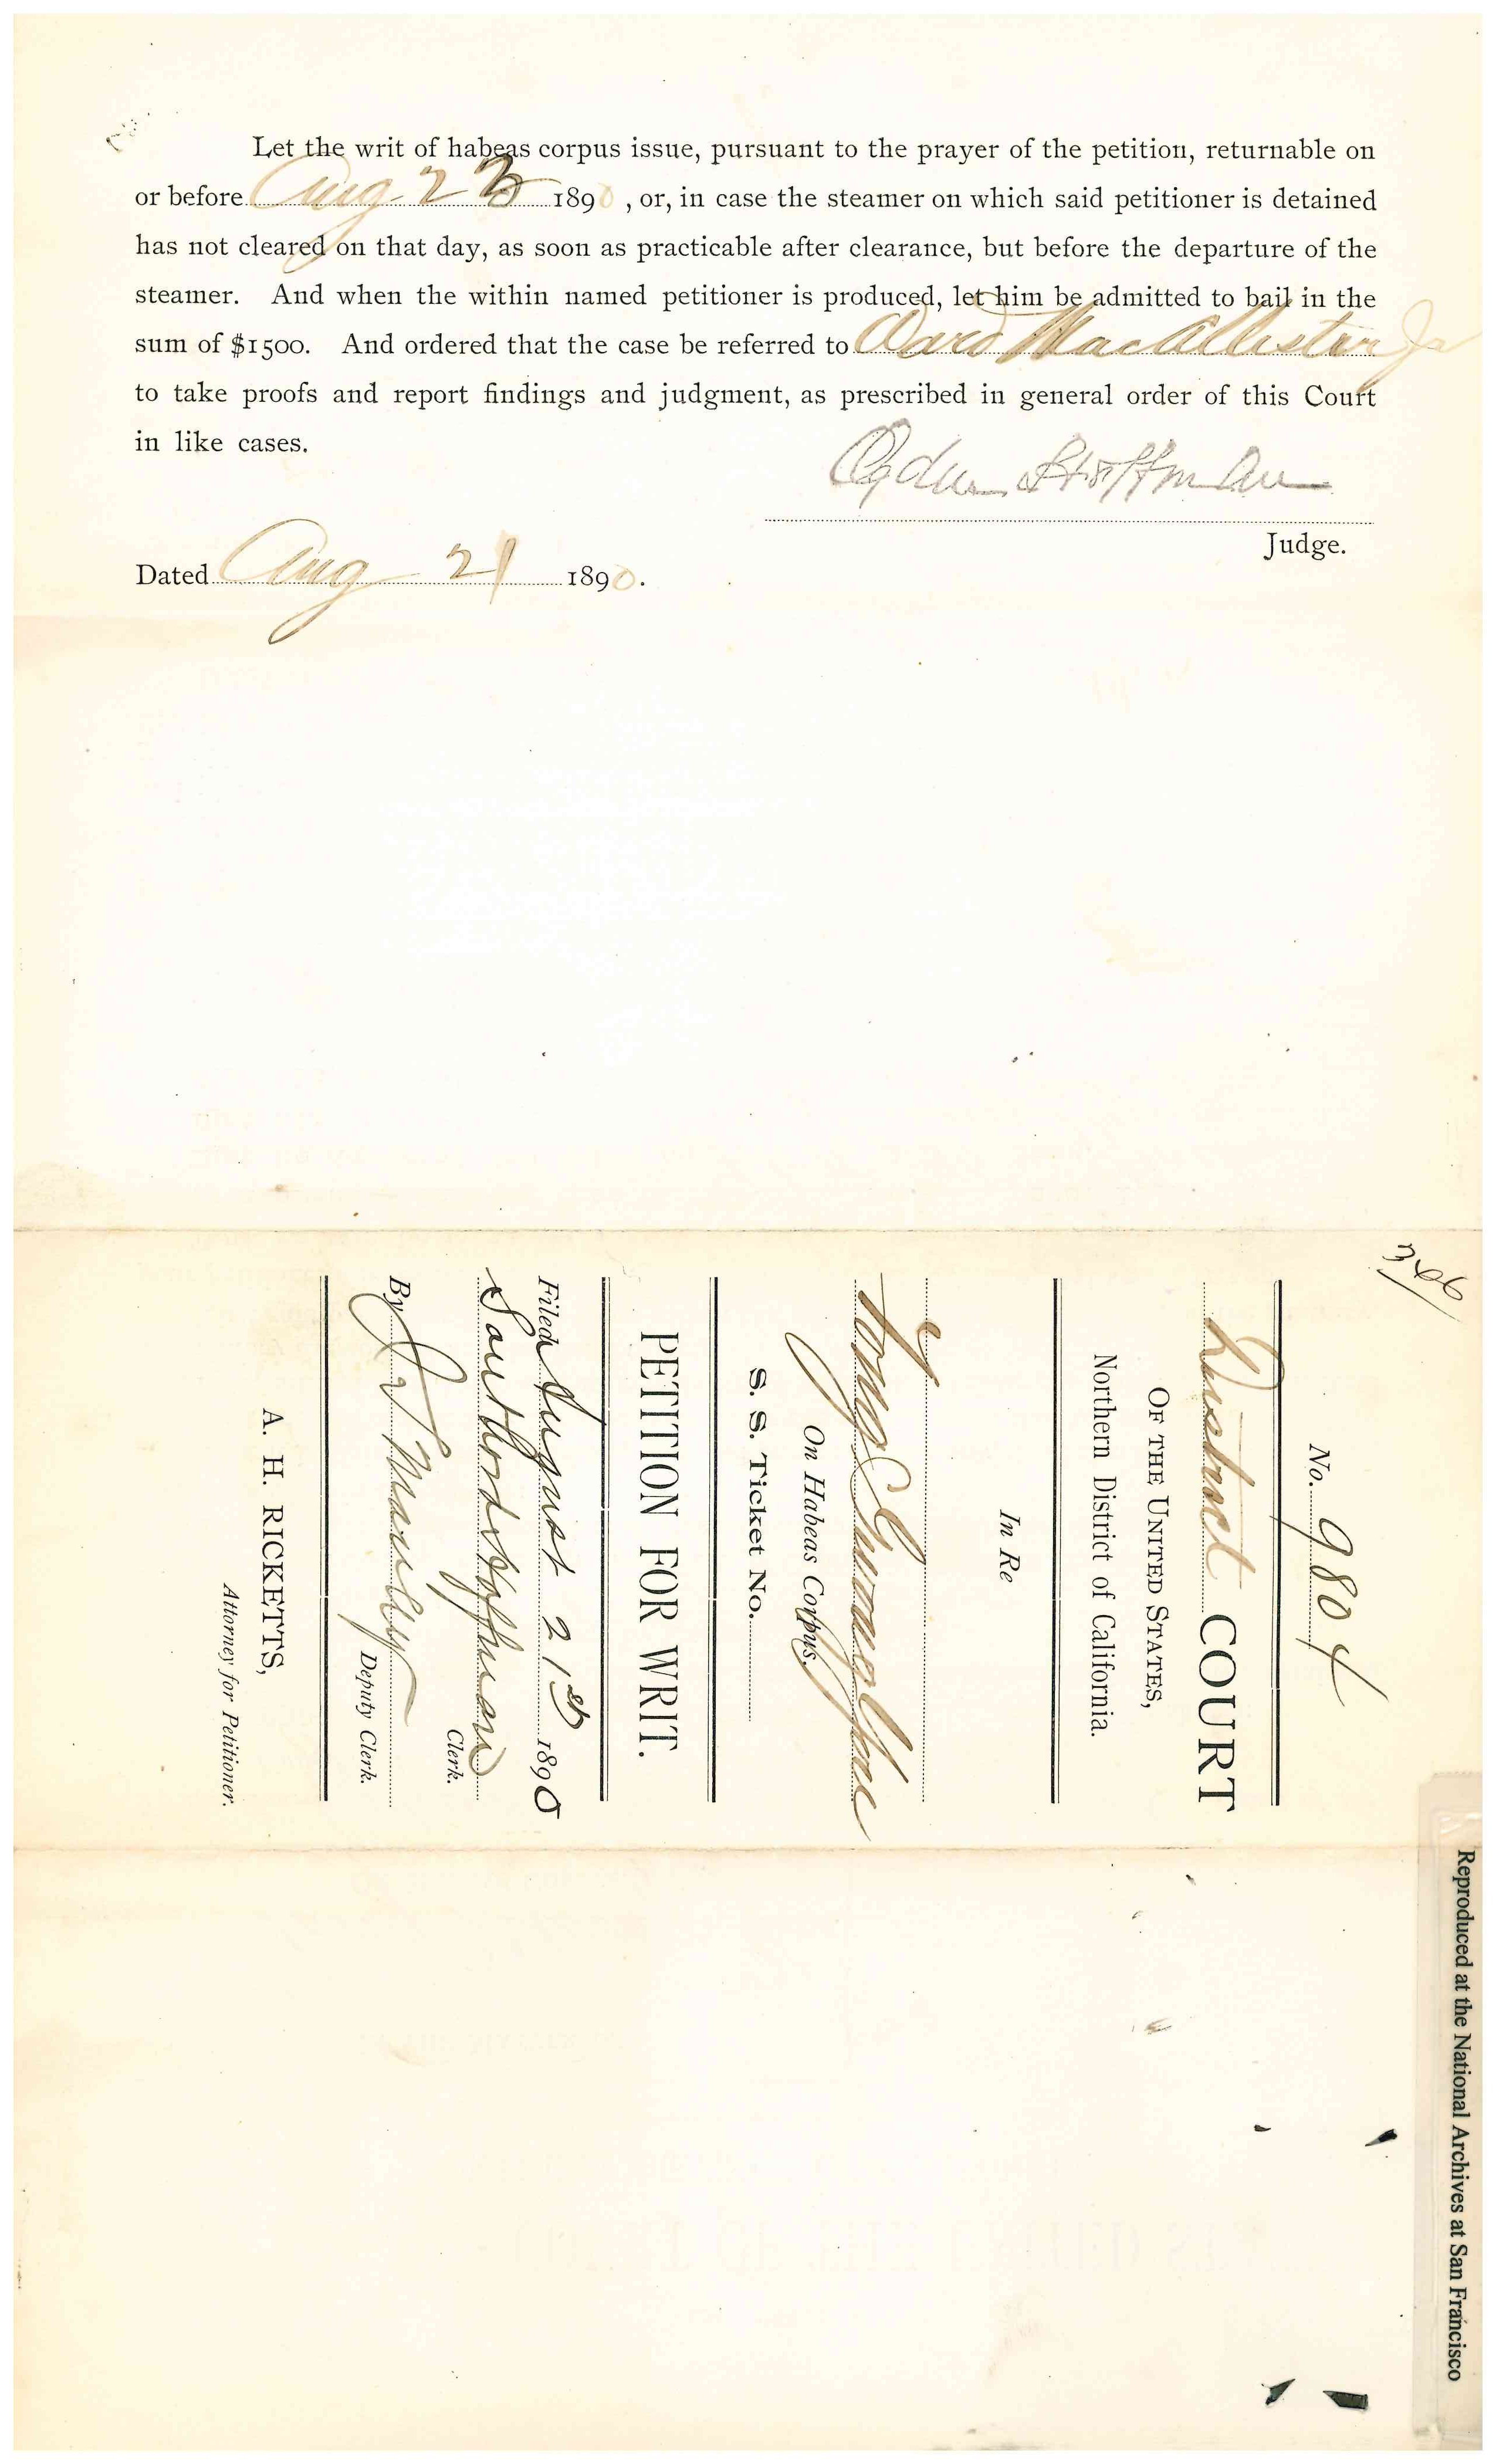 Let the writ of habeas corpus issue, pursuant to the prayer of the petition, returnable on
or before Aug 23 1890, or, in case the steamer on which said petitioner is detained
has not cleared on that day, as soon as practicable after clearance, but before the departure of the
steamer. And when the within named petitioner is produced, let him be admitted to bail in the
sum of $1500. And ordered that the case be referred to Ward MacAllister Jr
to take proofs and report findings and judgment, as prescribed in general order of this Court
in like cases.
Ogden Hoffman
Judge.
Dated Aug 21 1890.
No. 9804
District COURT
OF THE UNITED STATES,
Northern District of California.
In Re
On Habeas Corpus.
S. S. Ticket No.
PETITION FOR WRIT.
Filed August 21st 1890
Southard Hoffman
Clerk.
By J. S. Manley
Deputy Clerk.
A. H. RICKETTS,
Attorney for Petitioner.
Reproduced at the National Archives at San Francisco